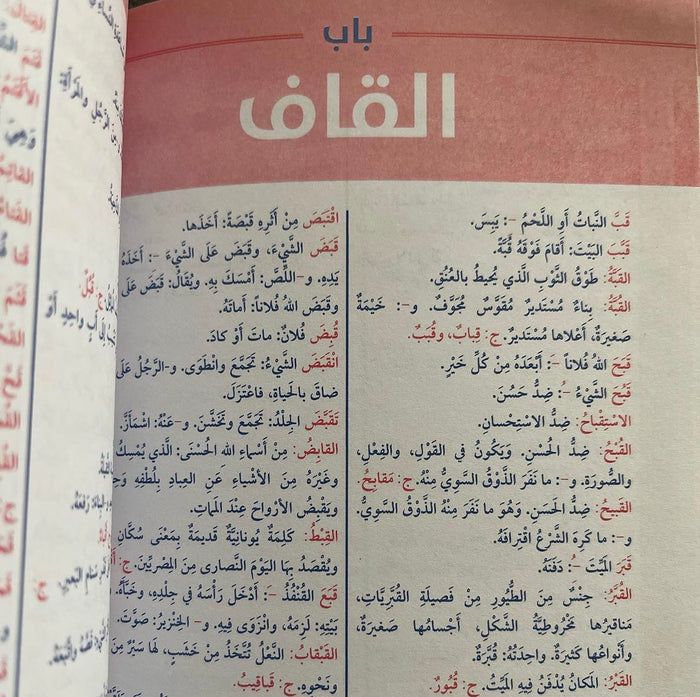 باب
القاف
قَبَّ النَّباتُ أَوِ اللَّحْمُ -ِ: يَبِسَ.
قَبَّبَ البَيْتَ: أَقامَ فَوْقَهُ قُبَّةً.
القَبَّةُ: طَوْقُ الثَّوْبِ الَّذي يُحيطُ بِالعُنُقِ.
القُبَّةُ: بِناءٌ مُسْتَديرٌ مُقَوَّسٌ مُجَوَّفٌ. و-: خَيْمَةٌ
صَغيرَةٌ، أَعْلاها مُسْتَديرٌ. ج: قِبابٌ، وقُبَبٌ.
قَبَحَ اللهُ فُلاناً -َ: أَبْعَدَهُ مِنْ كُلِّ خَيْرٍ.
قَبُحَ الشَّيْءُ -ُ: ضِدُّ حَسُنَ.
الاسْتِقْباحُ: ضِدُّ الاسْتِحْسانِ.
القُبْحُ: ضِدُّ الحُسْنِ. وَيَكُونُ في القَوْلِ، والفِعْلِ،
والصُّورَةِ. و-: ما نَفَرَ الذَّوْقُ السَّوِيُّ مِنْهُ. ج: مَقابِحُ.
القَبيحُ: ضِدُّ الحَسَنِ. وَهُوَ ما نَفَرَ مِنْهُ الذَّوْقُ السَّوِيُّ.
و-: ما كَرِهَ الشَّرْعُ اقْتِرافَهُ.
قَبَرَ المَيِّتَ -ُ: دَفَنَهُ.
القُبَّرُ: جِنْسٌ مِنَ الطُّيُورِ مِنْ فَصيلَةِ القُبَّرِيَّاتِ،
مَناقيرُها مَخْرُوطِيَّةُ الشَّكْلِ، أَجْسامُها صَغيرَةٌ،
وأَنْواعُها كَثيرَةٌ. واحِدَتُهُ: قُبَّرَةٌ.
القَبْرُ: المَكانُ يُدْفَنُ فيهِ المَيِّتُ. ج: قُبُورٌ.
اقْتَبَصَ مِنْ أَثَرِهِ قَبْصَةً: أَخَذَها.
قَبَضَ الشَّيْءَ، وَقَبَضَ عَلى الشَّيْءِ -ِ: أَخَذَهُ
يَدِهِ. و-اللِّصَّ: أَمْسَكَ بِهِ. ويُقالُ: قَبَضَ عَلَى
وقَبَضَ اللهُ فُلاناً: أَماتَهُ.
قُبِضَ فُلانٌ: ماتَ أَوْ كادَ.
انْقَبَضَ الشَّيْءُ: تَجَمَّعَ وانْطَوَى. و-الرَّجُلُ عَلَى
ضاقَ بِالحَياةِ، فاعْتَزَلَ.
تَقَبَّضَ الجِلْدُ: تَجَمَّعَ وتَخَشَّنَ. و-عَنْهُ: اشْمَأَزَّ.
القابِضُ: مِنْ أَسْماءِ اللهِ الحُسْنَى: الَّذي يُمْسِكُ
وَغَيْرَهُ مِنَ الأَشْياءِ عَنِ العِبادِ بِلُطْفِهِ
ويَقْبِضُ الأَرْواحَ عِنْدَ المَماتِ.
القِبْطُ: كَلِمَةٌ يُونانِيَّةٌ قَديمَةٌ بِمَعْنَى سُكَّانِ
ويُقْصَدُ بِها اليَوْمَ النَّصارى مِنَ المِصْرِيِّينَ. ج:
قَبَعَ القُنْفُذُ -َ: أَدْخَلَ رَأْسَهُ في جِلْدِهِ، وَخَبَّأَهُ.
بَيْتِهِ: لَزِمَهُ، وانْزَوَى فيهِ. و- الخِنْزيرُ: صَوَّتَ.
القَبْقابُ: النَّعْلُ تُتَّخَذُ مِنْ خَشَبٍ، لَها سَيْرٌ مِنْ
ونَحْوِهِ. ج: قَباقِيبُ.